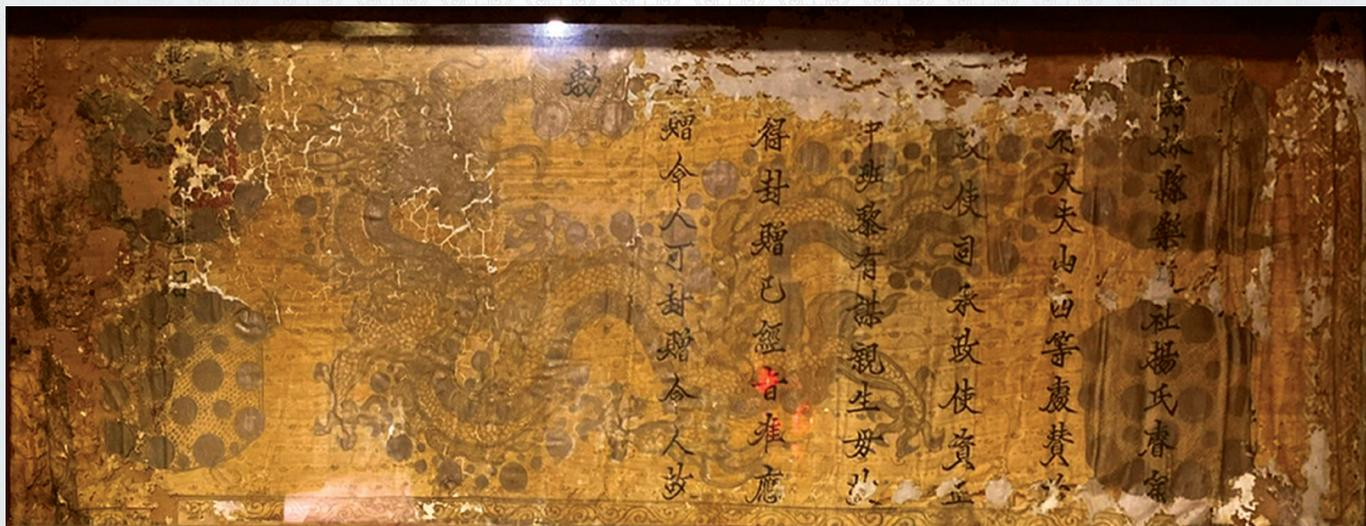 嘉林縣樂社楊氏
大夫山西等處贊治
政使司承政使資
中班黎有謀親生母故
得封贈已經旨准應
贈令人可封贈令人故
勅
日